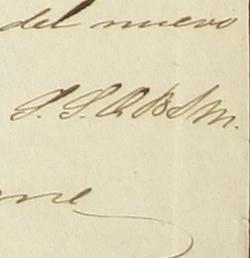 del nuevo
S. S. Q B S M.